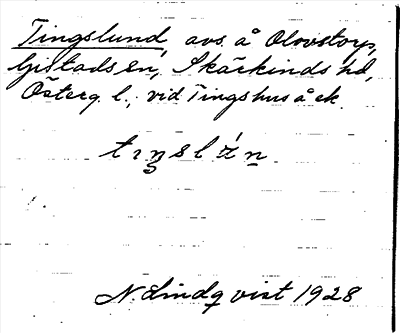 Tingslund, avs. å Olovstorp,
Gistads sn, Skärkinds hd,
Österg. l., vid Tingshus å ek.
N. Lindqvist 1928